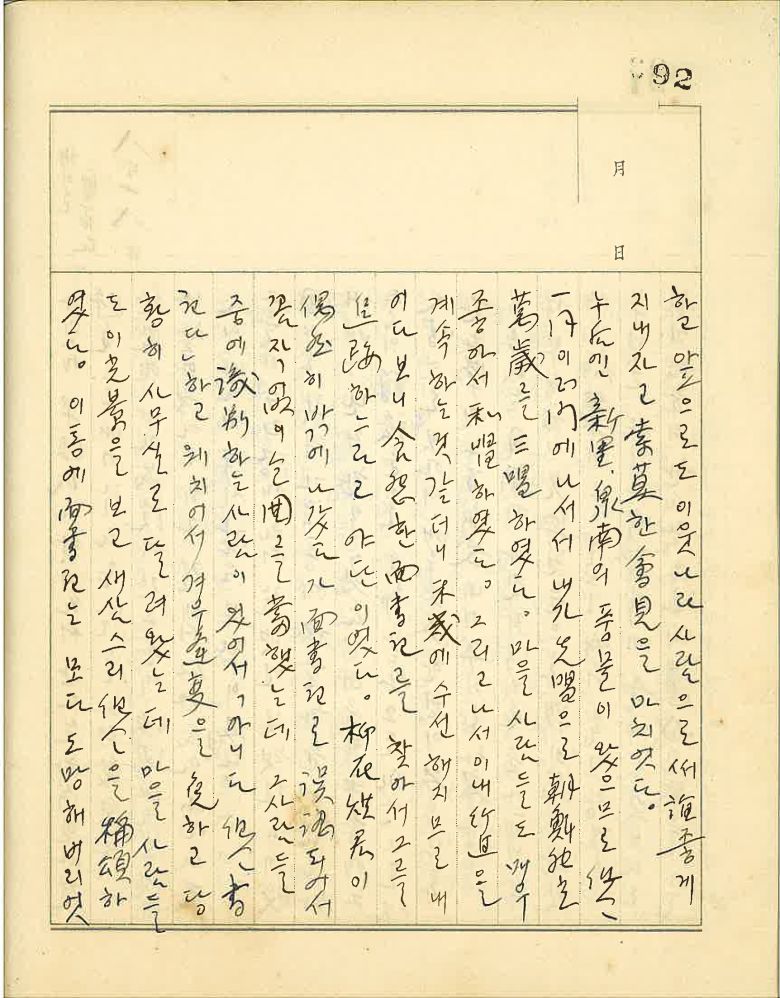 92
月
日
하고 앞으로도 이웃나라 사람으로써 誼좋게
지내자고 索莫한 會見을 마치엇다。
누后엔 新里、泉南의 풍물이 왔으므로
一円이 門에 나서서 내가 先唱으로 朝鮮独立
萬歲를 三唱 하였다。 마을 사람들도 매우
좋아서 和唱 하였다。 그리고 나서 이내 行進을
계속 하는것 같더니 未幾에 수선해지므로 내
어다 보니 含怨한 面書記를 찾아서 그를
追跡하느라고 야단이였다。 柳在 君이
偶然히 밖에 나갔다가 面書記로 誤認되어서
꼼작없이 困를 當했는데 그사람들
중에 識別하는 사람이 있어서 아니다 書
記다 하고 웨치어서 겨우 逢変을 免하고 당
황히 사무실로 달려왔는데 마을 사람들
도 이 光景을 보고 새삼스리 을 稱頌하
였다。 이통에 面書記는 모다 도망해 버리엇